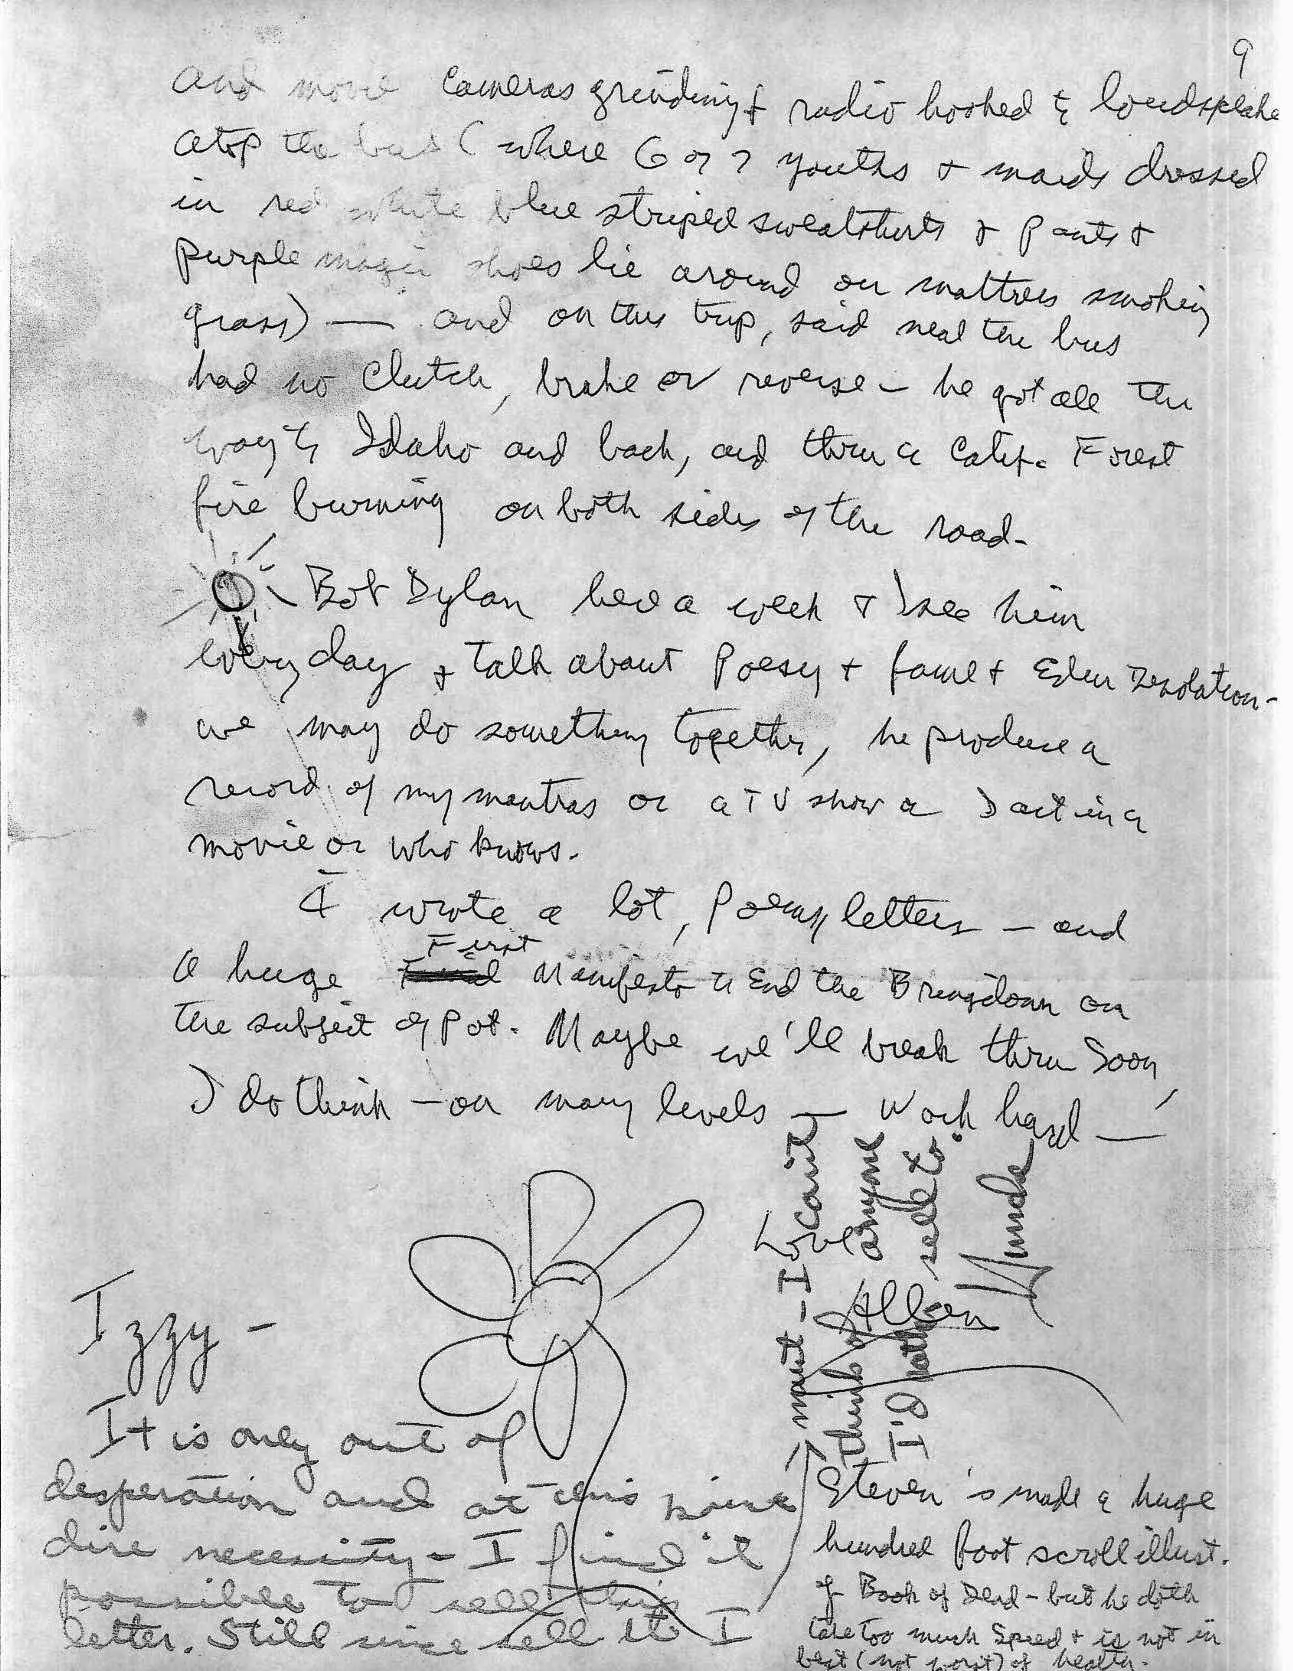 9
and movie cameras grinding & radio hooked to loudspeaker
atop the bus (where 6 or 7 youths & maids dressed
in red white blue striped sweatshirts & pants &
purple magic shoes lie around on mattress smoking
grass) — and on this trip, said Neal the bus
had no clutch, brake or reverse — he got all the
way to Idaho and back, and thru a Calif. Forest
fire burning on both sides of the road.
Bob Dylan here a week & I see him
every day & talk about Poesy & fame & Eden Desolation —
we may do something together, he produce a
record of my mantras or a TV show or I act in a
movie or who knows.
I wrote a lot, Poems, letters — and
First
a huge Manifesto to End the Bringdown on
the subject of Pot. Maybe we'll break thru Soon,
I do think — on many levels — Work hard —
Love
Allen
Steven's made a huge
hundred foot scroll illust.
of Book of Dead — but he doth
take too much Speed & is not in
best (not worst) of health.
Izzy —
It is only out of
desperation and at this point
dire necessity — I find it
possible to sell this
letter. Still since sell it I
must — I can't
think of anyone
I'd rather sell to.
Hunde